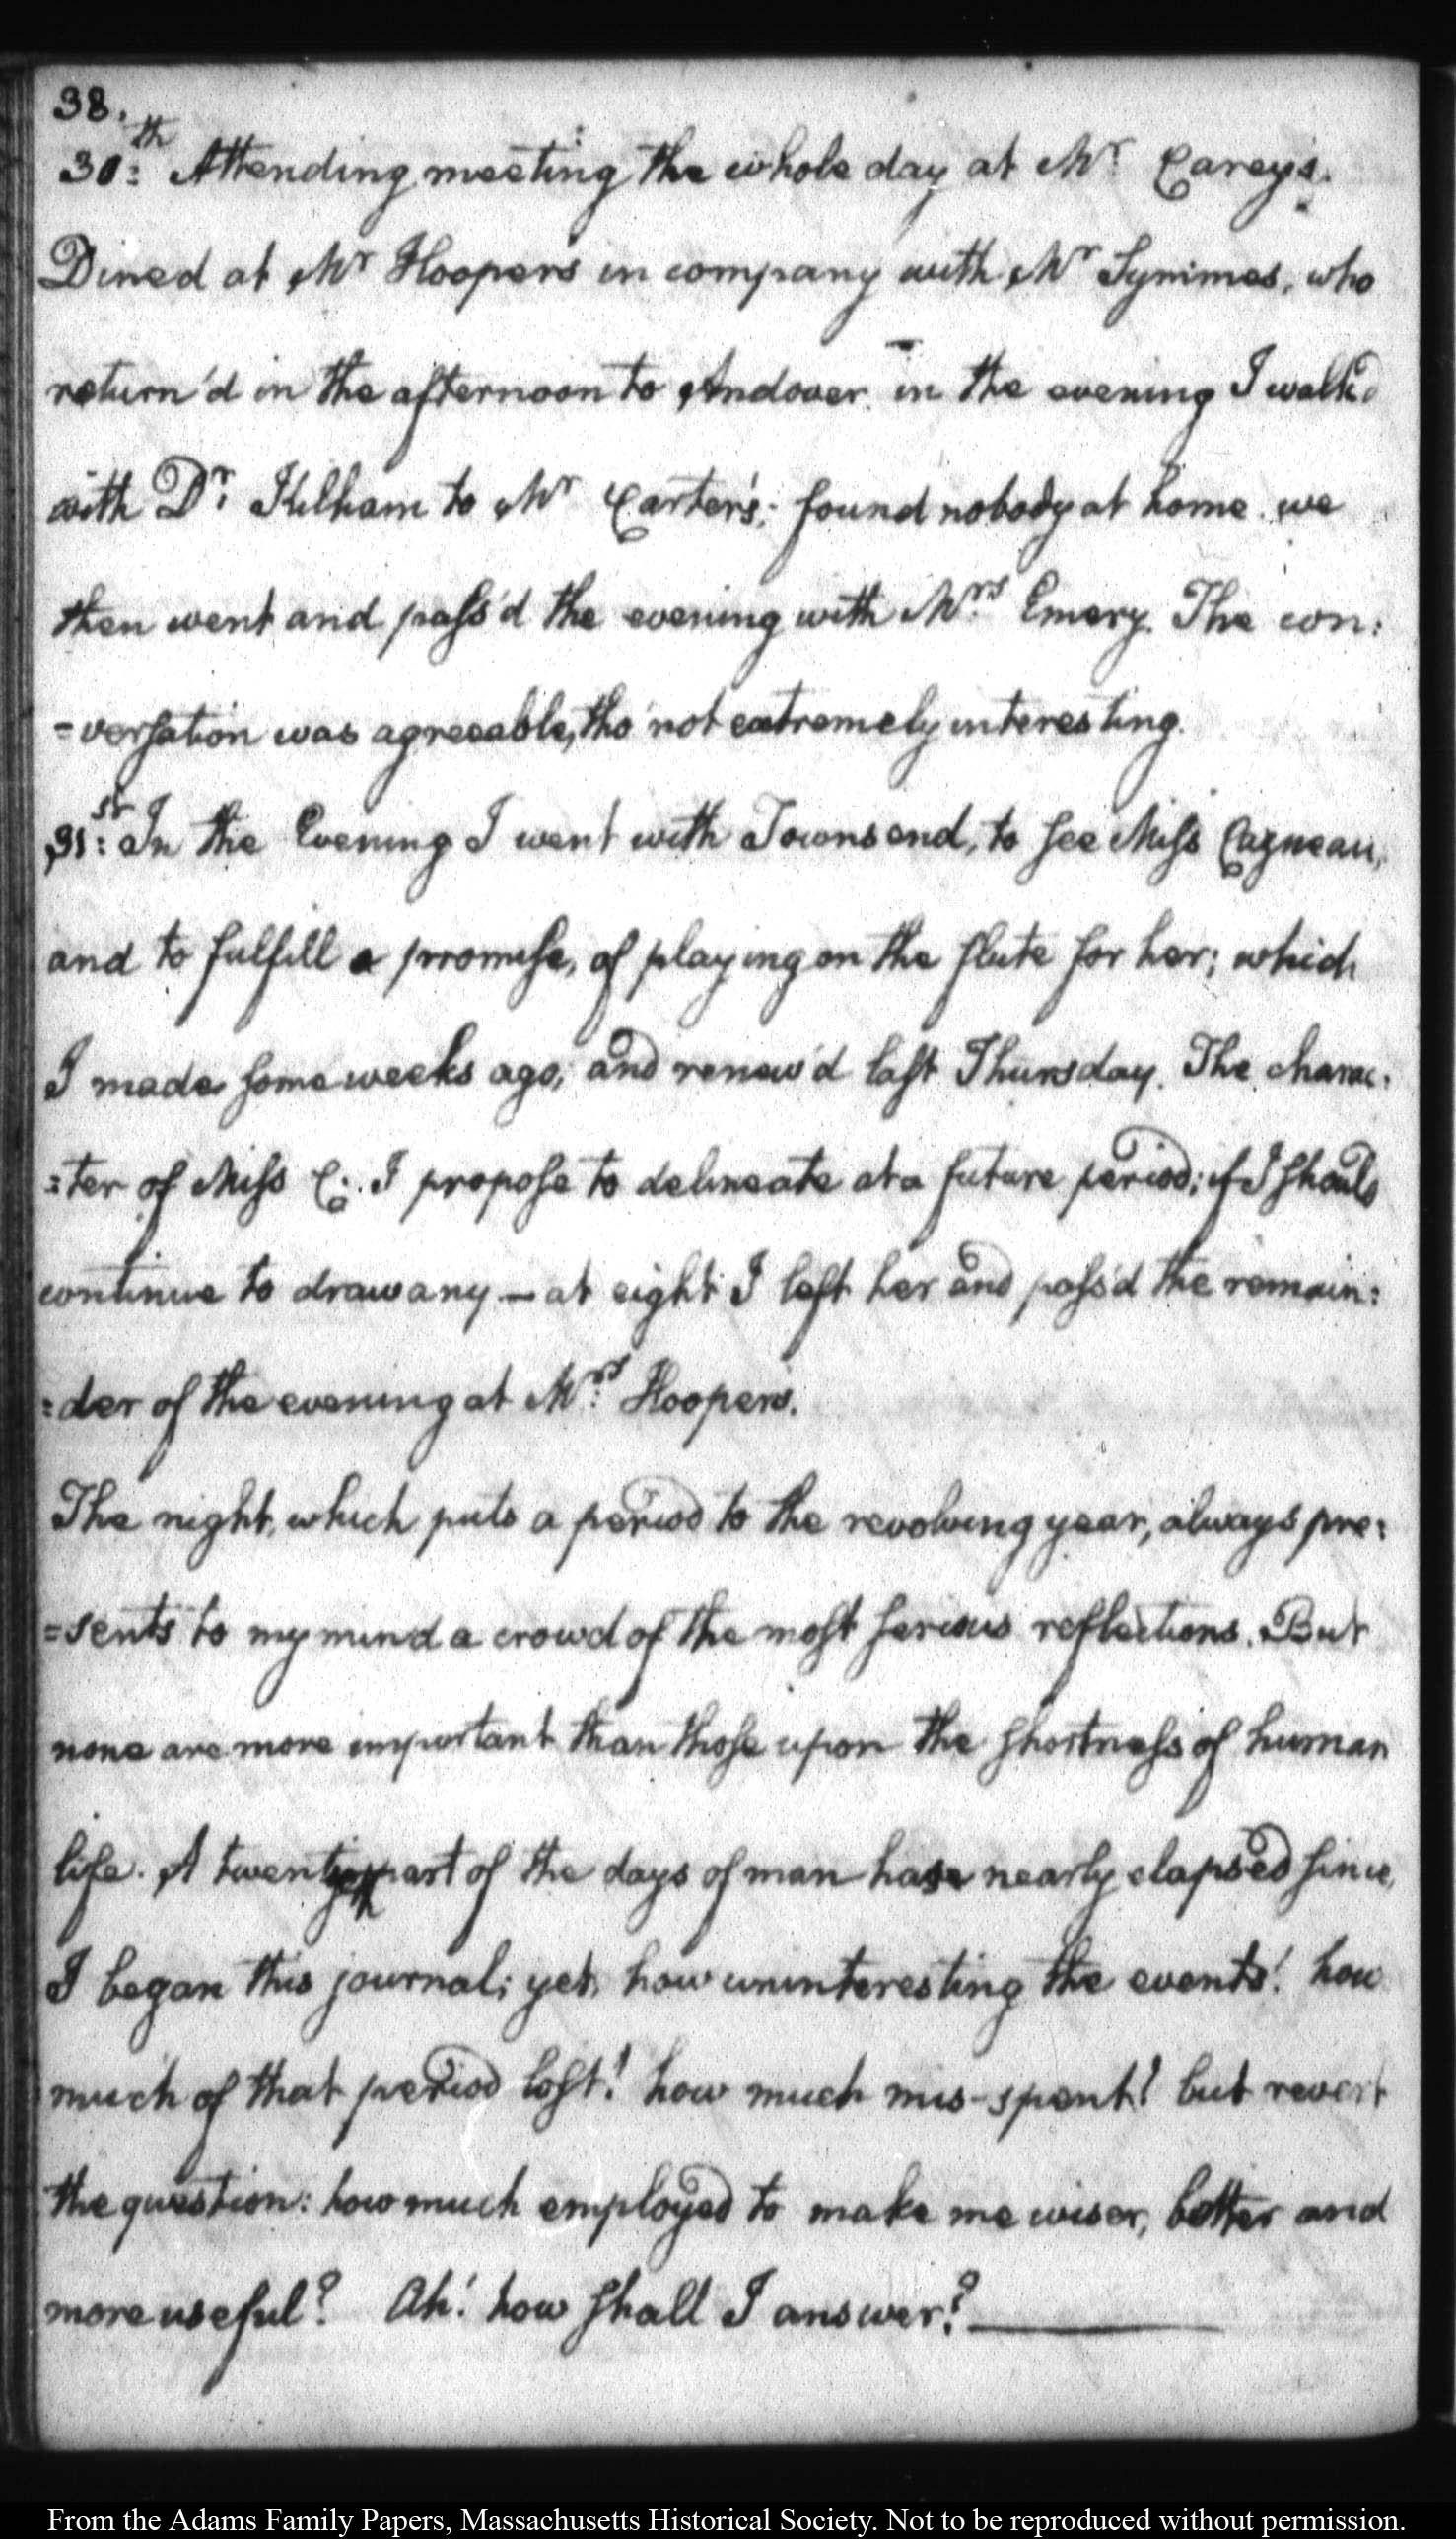 38.
30:th Attending meeting the whole day at Mr. Carey's.
Dined at Mr Hoopers in company with Mr Symmes, who
return'd in the afternoon to Andover. in the evening I walk'd
with Dr. Kilham to Mr Carter's; found nobody at home. we
then went and pass'd the evening with Mrs. Emery. The con:
=versation was agreeable, tho' not extremely interesting.
31:st In the Evening I went with Townsend, to see Miss Cazneau,
and to fulfill a promise, of playing on the flute for her; which
I made some weeks ago; and renew'd last Thursday. The charac:
=ter of Miss C:. I propose to delineate at a future period; if I should
continue to draw any — at eight I left her and pass'd the remain:
=der of the evening at Mrs. Hoopers.
The night, which puts a period to the revolving year, always pre:
=sents to my mind a crowd of the most serious reflections. But
none are more important than those upon the shortness of human
life. A twentyeth part of the days of man have nearly elapsed since,
I began this journal; yet, how uninteresting the events! how
much of that period lost! how much mis-spent! but revert
the question: how much employed to make me wiser, better and
more useful? Ah! how shall I answer? —
From the Adams Family Papers, Massachusetts Historical Society. Not to be reproduced without permission.